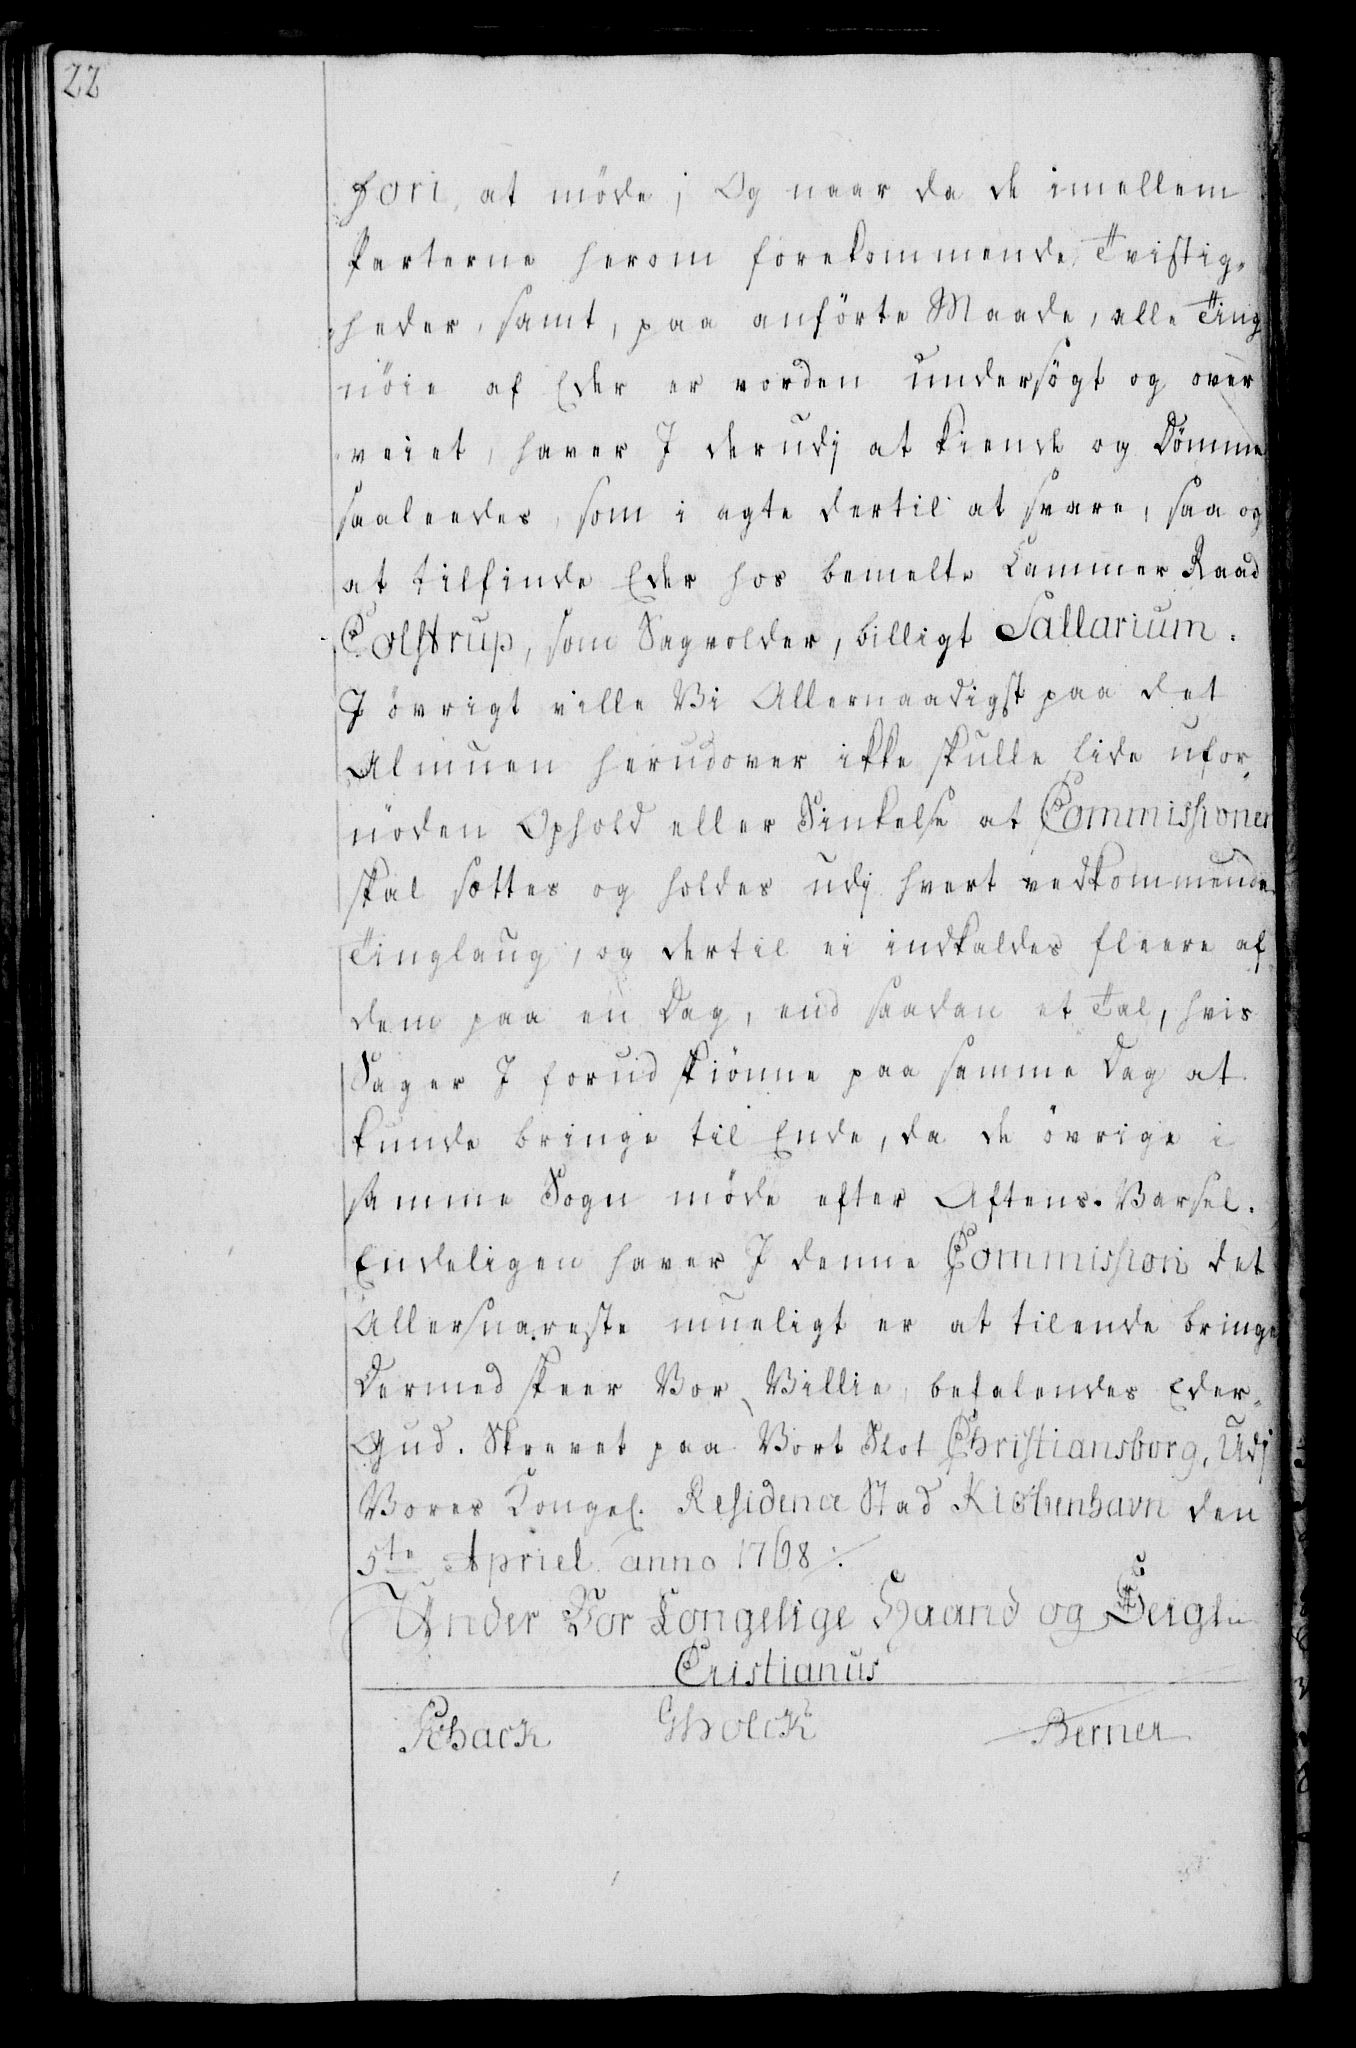 22
fori, at möde; Og naar da de imellem
Parterne herom forekommende Tvistig-
heder, samt, paa anförte Maade, alle Ting
nöie af Eder er vorden undersögt og over
veiet, haver I derudj at kiende og Dömme
saaleedes, som i agte dertil at svare, saa og
at tilfinde Eder hos bemelte Cammer Raad
Colstrup, som Sagvolder, billigt Sallarium.
I övrigt ville Vi Allernaadigst paa det
Almuen herudover ikke skulle lide ufor-
nöden Ophold eller Sinkelse at Commissionen
skal sættes og holdes udj hvert vedkommende
Tinglaug, og dertil ei indkaldes fleere af
dem paa en Dag, end saadan et Tal, hvis
Sager I forud skiönne paa samme Dag at
kunde bringe til Ende, da de övrige i
samme Sogn möde efter Aftens-Varsel.
Endeligen haver I denne Commission det
Allersnareste mueligt er at tilende bringe
Dermed skeer Vor Villie, befalendes Eder
Gud. Skrevet paa Vort Slot Christiansborg, Udj
Vores Kongel. Residence Stad Kiöbenhavn den
5te Apriel anno 1768 ./.
Under Vor Kongelige Haand og Seigl
Cristianus
Schack GHolck Berner